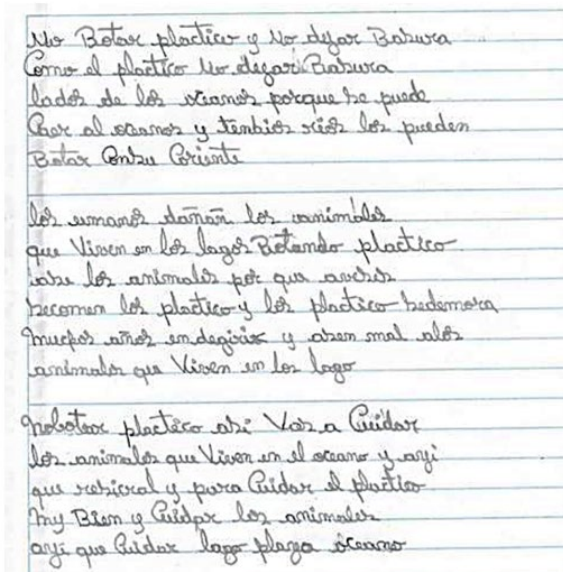 No Botar plactico y No dejar Basura
Como el plactico No dejar Basura
lados de los oceanos porque se puede
Caer al oceanos y tenbios rios los pueden
Botar Consu Coriente
los umanos dañan los canimales
que Viven en los lagos Botando plactico
los animales por que aveses
secomen los plactico y los plactico sedemora
muchos años endegirix y asen mal alos
animales que Viven en los lago
nobotear plactico asi Vas a Cuidar
los animales que Viven en el oceano y ayi
que resicral y para Cuidar el plactico
my Bien y Cuidar los animales
ayi que Cuidar lago playa oceano